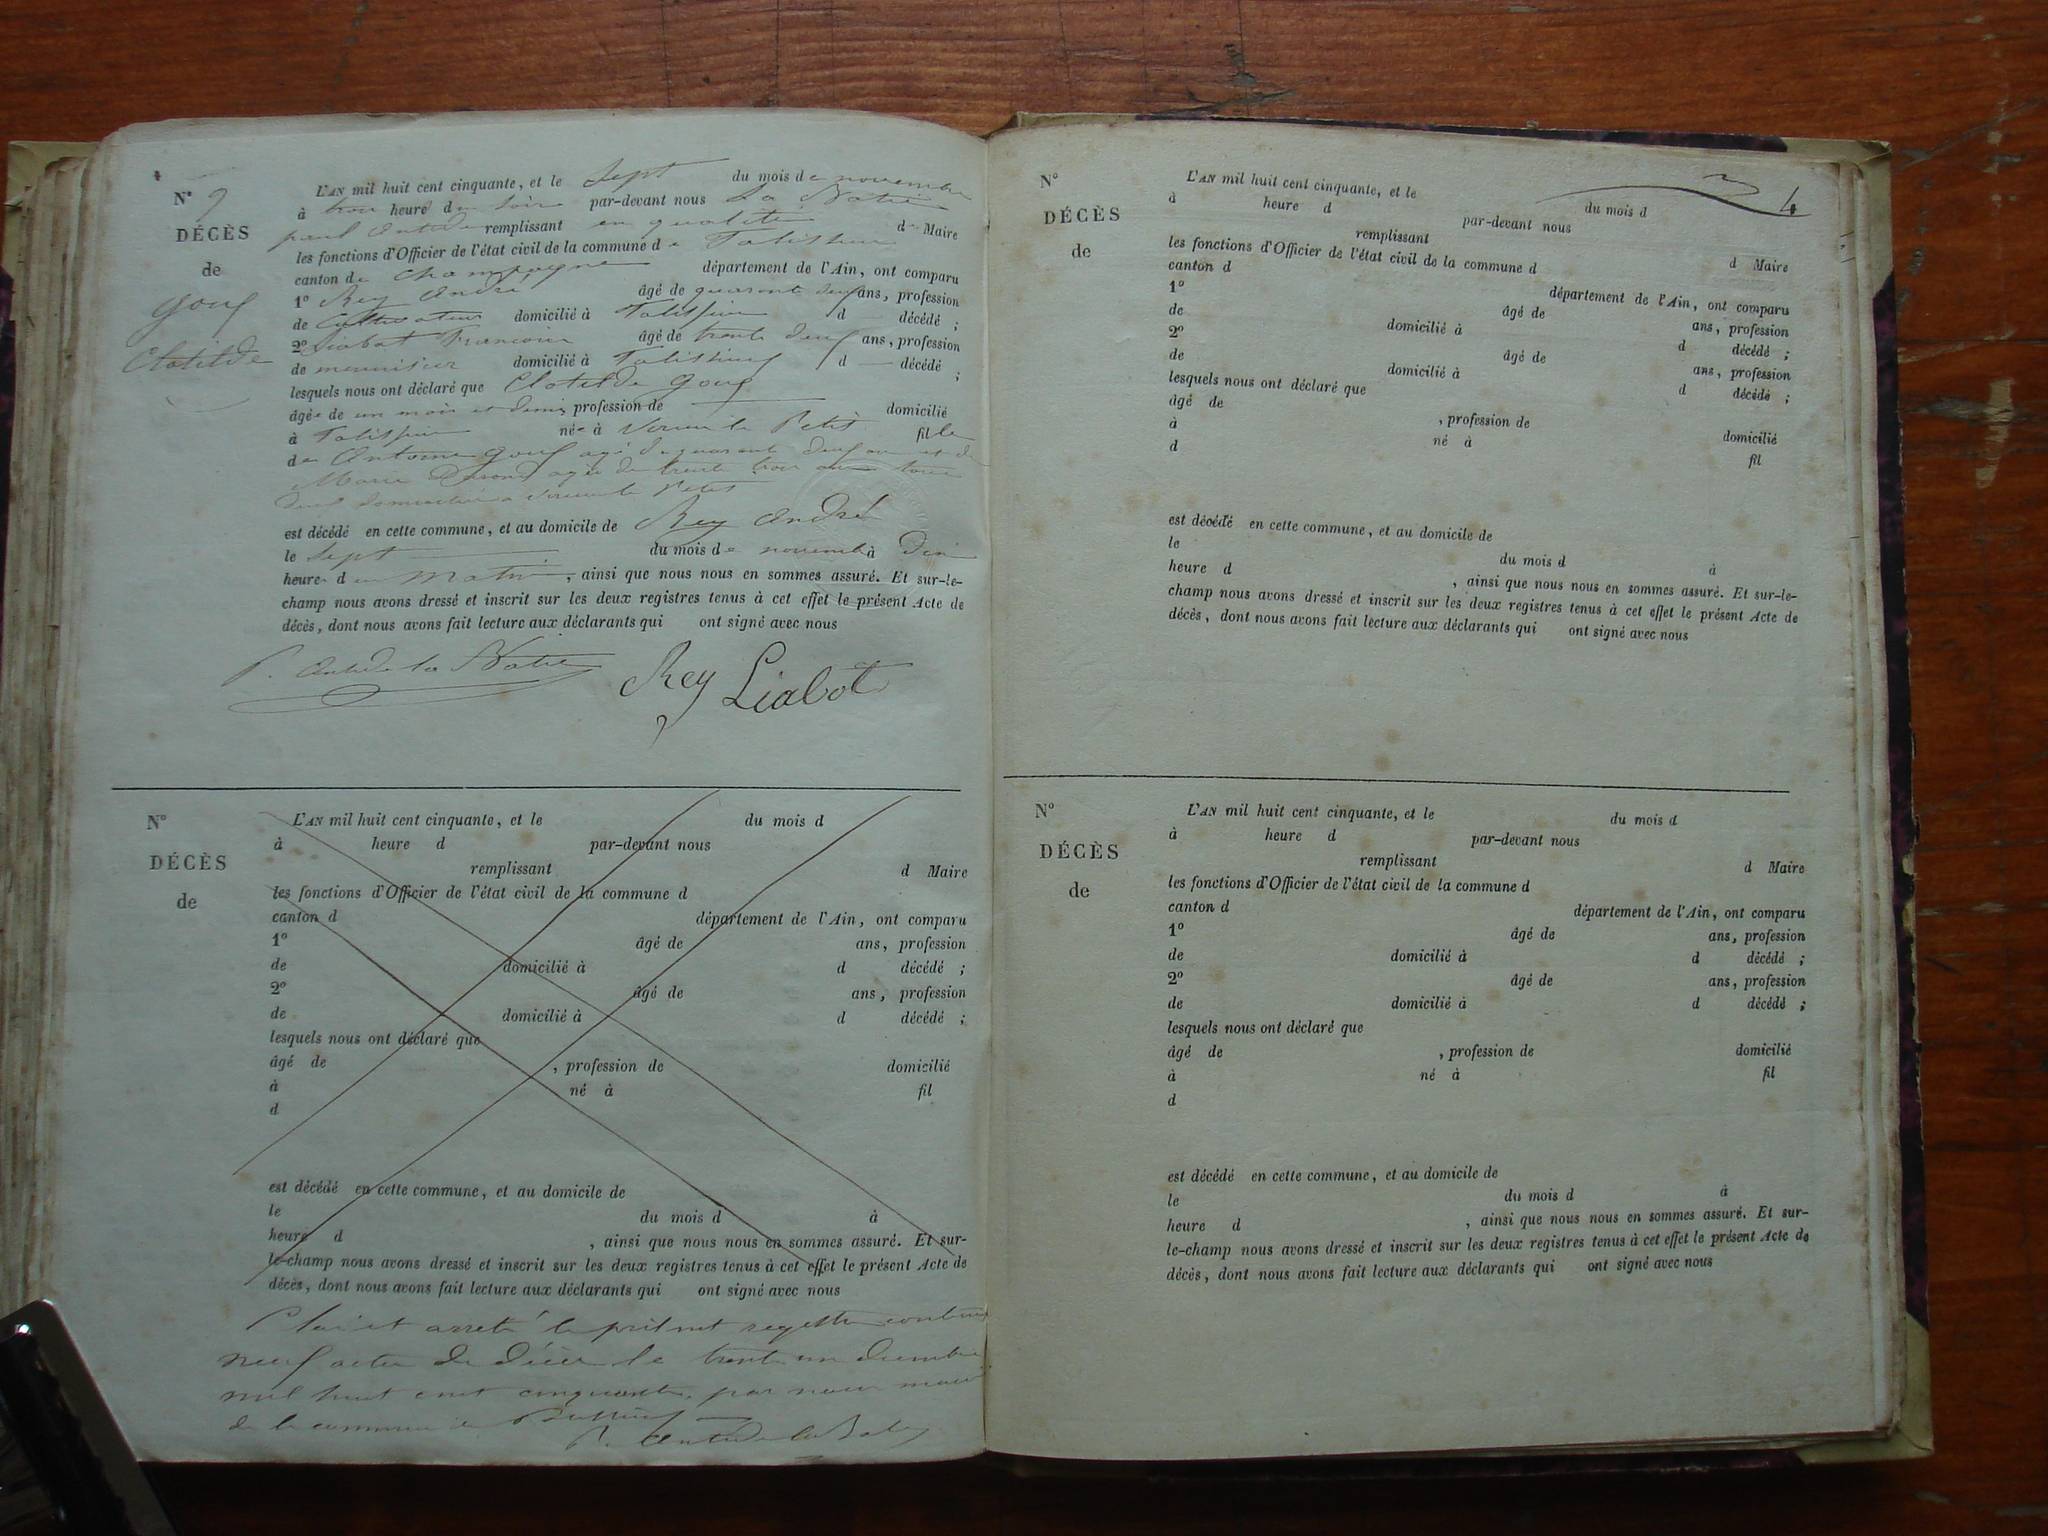 N° 9
DÉCÈS
de
Gouf
Clotilde
L'AN mil huit cent cinquante, et le Sept du mois de novembre
à trois heures du soir par-devant nous La Batie
paul Antide remplissant en qualité de Maire
les fonctions d'Officier de l'état civil de la commune de Talissieu
canton de Champagne département de l'Ain, ont comparu
1° Rey André âgé de quarante deux ans, profession
de Cultivateur domicilié à Talissieu d décédé ;
2° Liabot François âgé de trente deux ans, profession
de menuisier domicilié à Talissieu d décédé ;
lesquels nous ont déclaré que Clotilde Gouf
âgée de un mois et demi, profession de domicilié
à Talissieu née à Virieu le Petit fille
de Antoine Gouf agé de quarante deux ans et de
Marie agée de trente trois ans tous
deux domiciliés a Virieu le Petit
est décédé en cette commune, et au domicile de Rey André
le Sept du mois de novembre à Dix
heures du Matin, ainsi que nous nous en sommes assuré. Et sur-le-
champ nous avons dressé et inscrit sur les deux registres tenus à cet effet le présent Acte de
décès, dont nous avons fait lecture aux déclarants qui ont signé avec nous
P. Antide la Batie Rey Liabot
N°
DÉCÈS
de
L'AN mil huit cent cinquante, et le du mois d
à heure d par-devant nous
remplissant d Maire
les fonctions d'Officier de l'état civil de la commune d
canton d département de l'Ain, ont comparu
1° âgé de ans, profession
de domicilié à d décédé ;
2° âgé de ans, profession
de domicilié à d décédé ;
lesquels nous ont déclaré que
âgé de , profession de domicilié
à né à fil
d
est décédé en cette commune, et au domicile de
le du mois d à
heure d , ainsi que nous nous en sommes assuré. Et sur-
le-champ nous avons dressé et inscrit sur les deux registres tenus à cet effet le présent Acte de
décès, dont nous avons fait lecture aux déclarants qui ont signé avec nous
Clos et arreté le présent registre contenant
neuf actes de décès le trente un décembre
mil huit cent cinquante, par nous maire
de la commune de
P. Antide la Batie
4
N°
DÉCÈS
de
L'AN mil huit cent cinquante, et le du mois d
à heure d par-devant nous
remplissant d Maire
les fonctions d'Officier de l'état civil de la commune d
canton d département de l'Ain, ont comparu
1° âgé de ans, profession
de domicilié à d décédé ;
2° âgé de ans, profession
de domicilié à d décédé ;
lesquels nous ont déclaré que
âgé de , profession de domicilié
à né à fil
d
est décédé en cette commune, et au domicile de
le du mois d à
heure d , ainsi que nous nous en sommes assuré. Et sur-le-
champ nous avons dressé et inscrit sur les deux registres tenus à cet effet le présent Acte de
décès, dont nous avons fait lecture aux déclarants qui ont signé avec nous
N°
DÉCÈS
de
L'AN mil huit cent cinquante, et le du mois d
à heure d par-devant nous
remplissant d Maire
les fonctions d'Officier de l'état civil de la commune d
canton d département de l'Ain, ont comparu
1° âgé de ans, profession
de domicilié à d décédé ;
2° âgé de ans, profession
de domicilié à d décédé ;
lesquels nous ont déclaré que
âgé de , profession de domicilié
à né à fil
d
est décédé en cette commune, et au domicile de
le du mois d à
heure d , ainsi que nous nous en sommes assuré. Et sur-
le-champ nous avons dressé et inscrit sur les deux registres tenus à cet effet le présent Acte de
décès, dont nous avons fait lecture aux déclarants qui ont signé avec nous